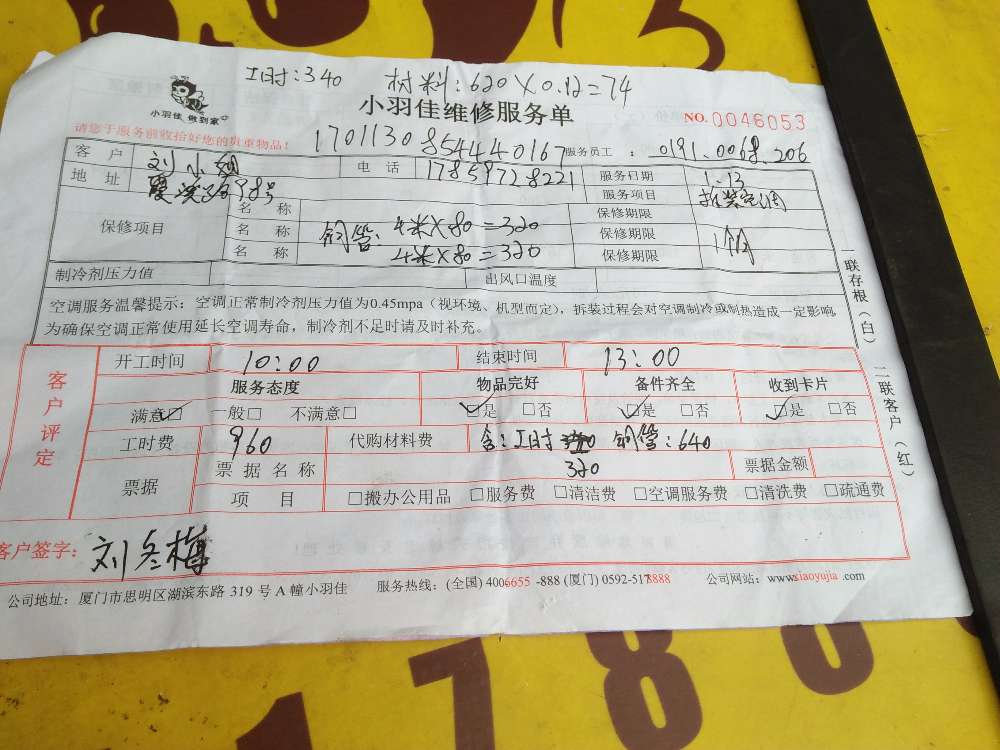 工时:340 材料:620×0.12=74
小羽佳 做到家
小羽佳维修服务单
NO.0046053
请您于服务前收拾好您的贵重物品!
17011308544440167
服务员工 : 0191.0068.206
客户 刘小姐 电话 17859728221 服务日期 1.13
地址 98号 服务项目 拆装空调
保修项目
名称 保修期限
名称 铜管: 4米×80=320 保修期限 1个月
名称 4米×80=320 保修期限
制冷剂压力值 出风口温度
空调服务温馨提示:空调正常制冷剂压力值为0.45mpa(视环境、机型而定),拆装过程会对空调制冷或制热造成一定影响,
为确保空调正常使用延长空调寿命,制冷剂不足时请及时补充。
一联存根(白) 二联客户(红)
客户评定
开工时间 10:00 结束时间 13:00
服务态度 物品完好 备件齐全 收到卡片
满意☑ 一般□ 不满意□ ☑是 □否 ☑是 □否 ☑是 □否
工时费 960 代购材料费 含:工时 320 铜管:640
票据 票据名称 票据金额
项目 □搬办公用品 □服务费 □清洁费 □空调服务费 □清洗费 □疏通费
客户签字: 刘冬梅
公司地址:厦门市思明区湖滨东路 319 号 A 幢小羽佳 服务热线:(全国) 4006655-888 (厦门) 0592-5178888 公司网站:www.xiaoyujia.com